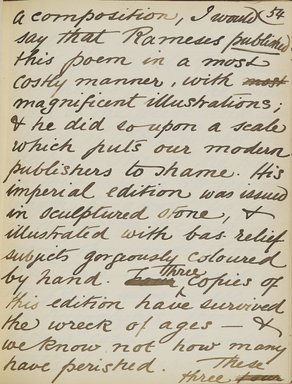 a composition, I would 54
say that Rameses published
this poem in a most
costly manner, with most
magnificent illustrations;
& he did so upon a scale
which puts our modern
publishers to shame. His
imperial edition was issued
in sculptured stone, &
illustrated with bas-relief
subjects gorgeously coloured
by hand. Four three copies of
this edition have survived
the wreck of ages — &
we know not how many
have perished. These
three four